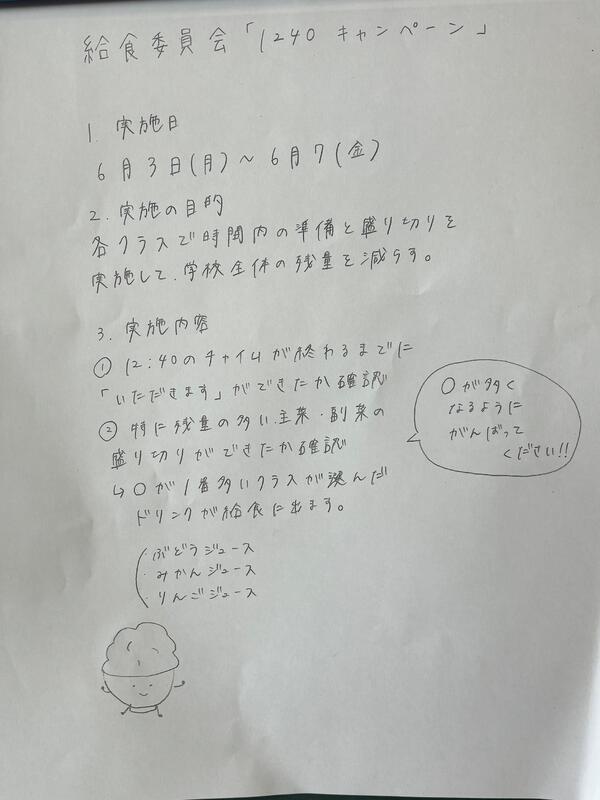 給食委員会「1240 キャンペーン」
1. 実施日
6月3日(月)〜6月7(金)
2. 実施の目的
各クラスで時間内の準備と盛り切りを
実施して、学校全体の残量を減らす。
3. 実施内容
① 12:40のチャイムが終わるまでに
「いただきます」ができたか確認
② 特に残量の多い主菜・副菜の
盛り切りができたか確認
↳ ○が1番多いクラスが選んだ
ドリンクが給食に出ます。
・ぶどうジュース
・みかんジュース
・りんごジュース
○が多く
なるように
がんばって
ください!!